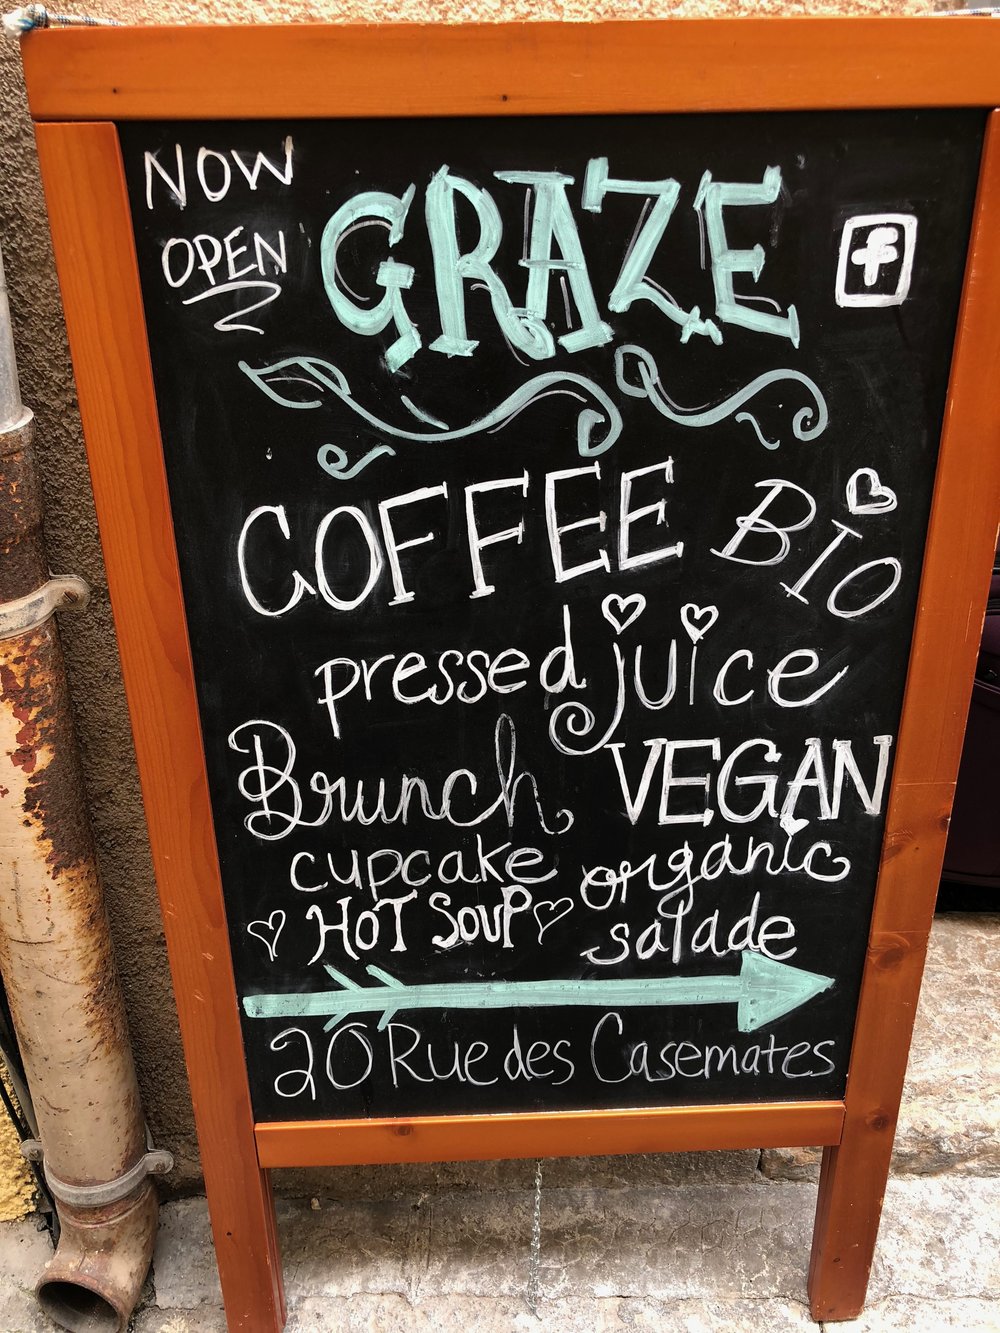 NOW
OPEN
GRAZE
f
COFFEE BIO
pressed juice
Brunch VEGAN
cupcake organic
HOT SOUP salade
20 Rue des Casemates